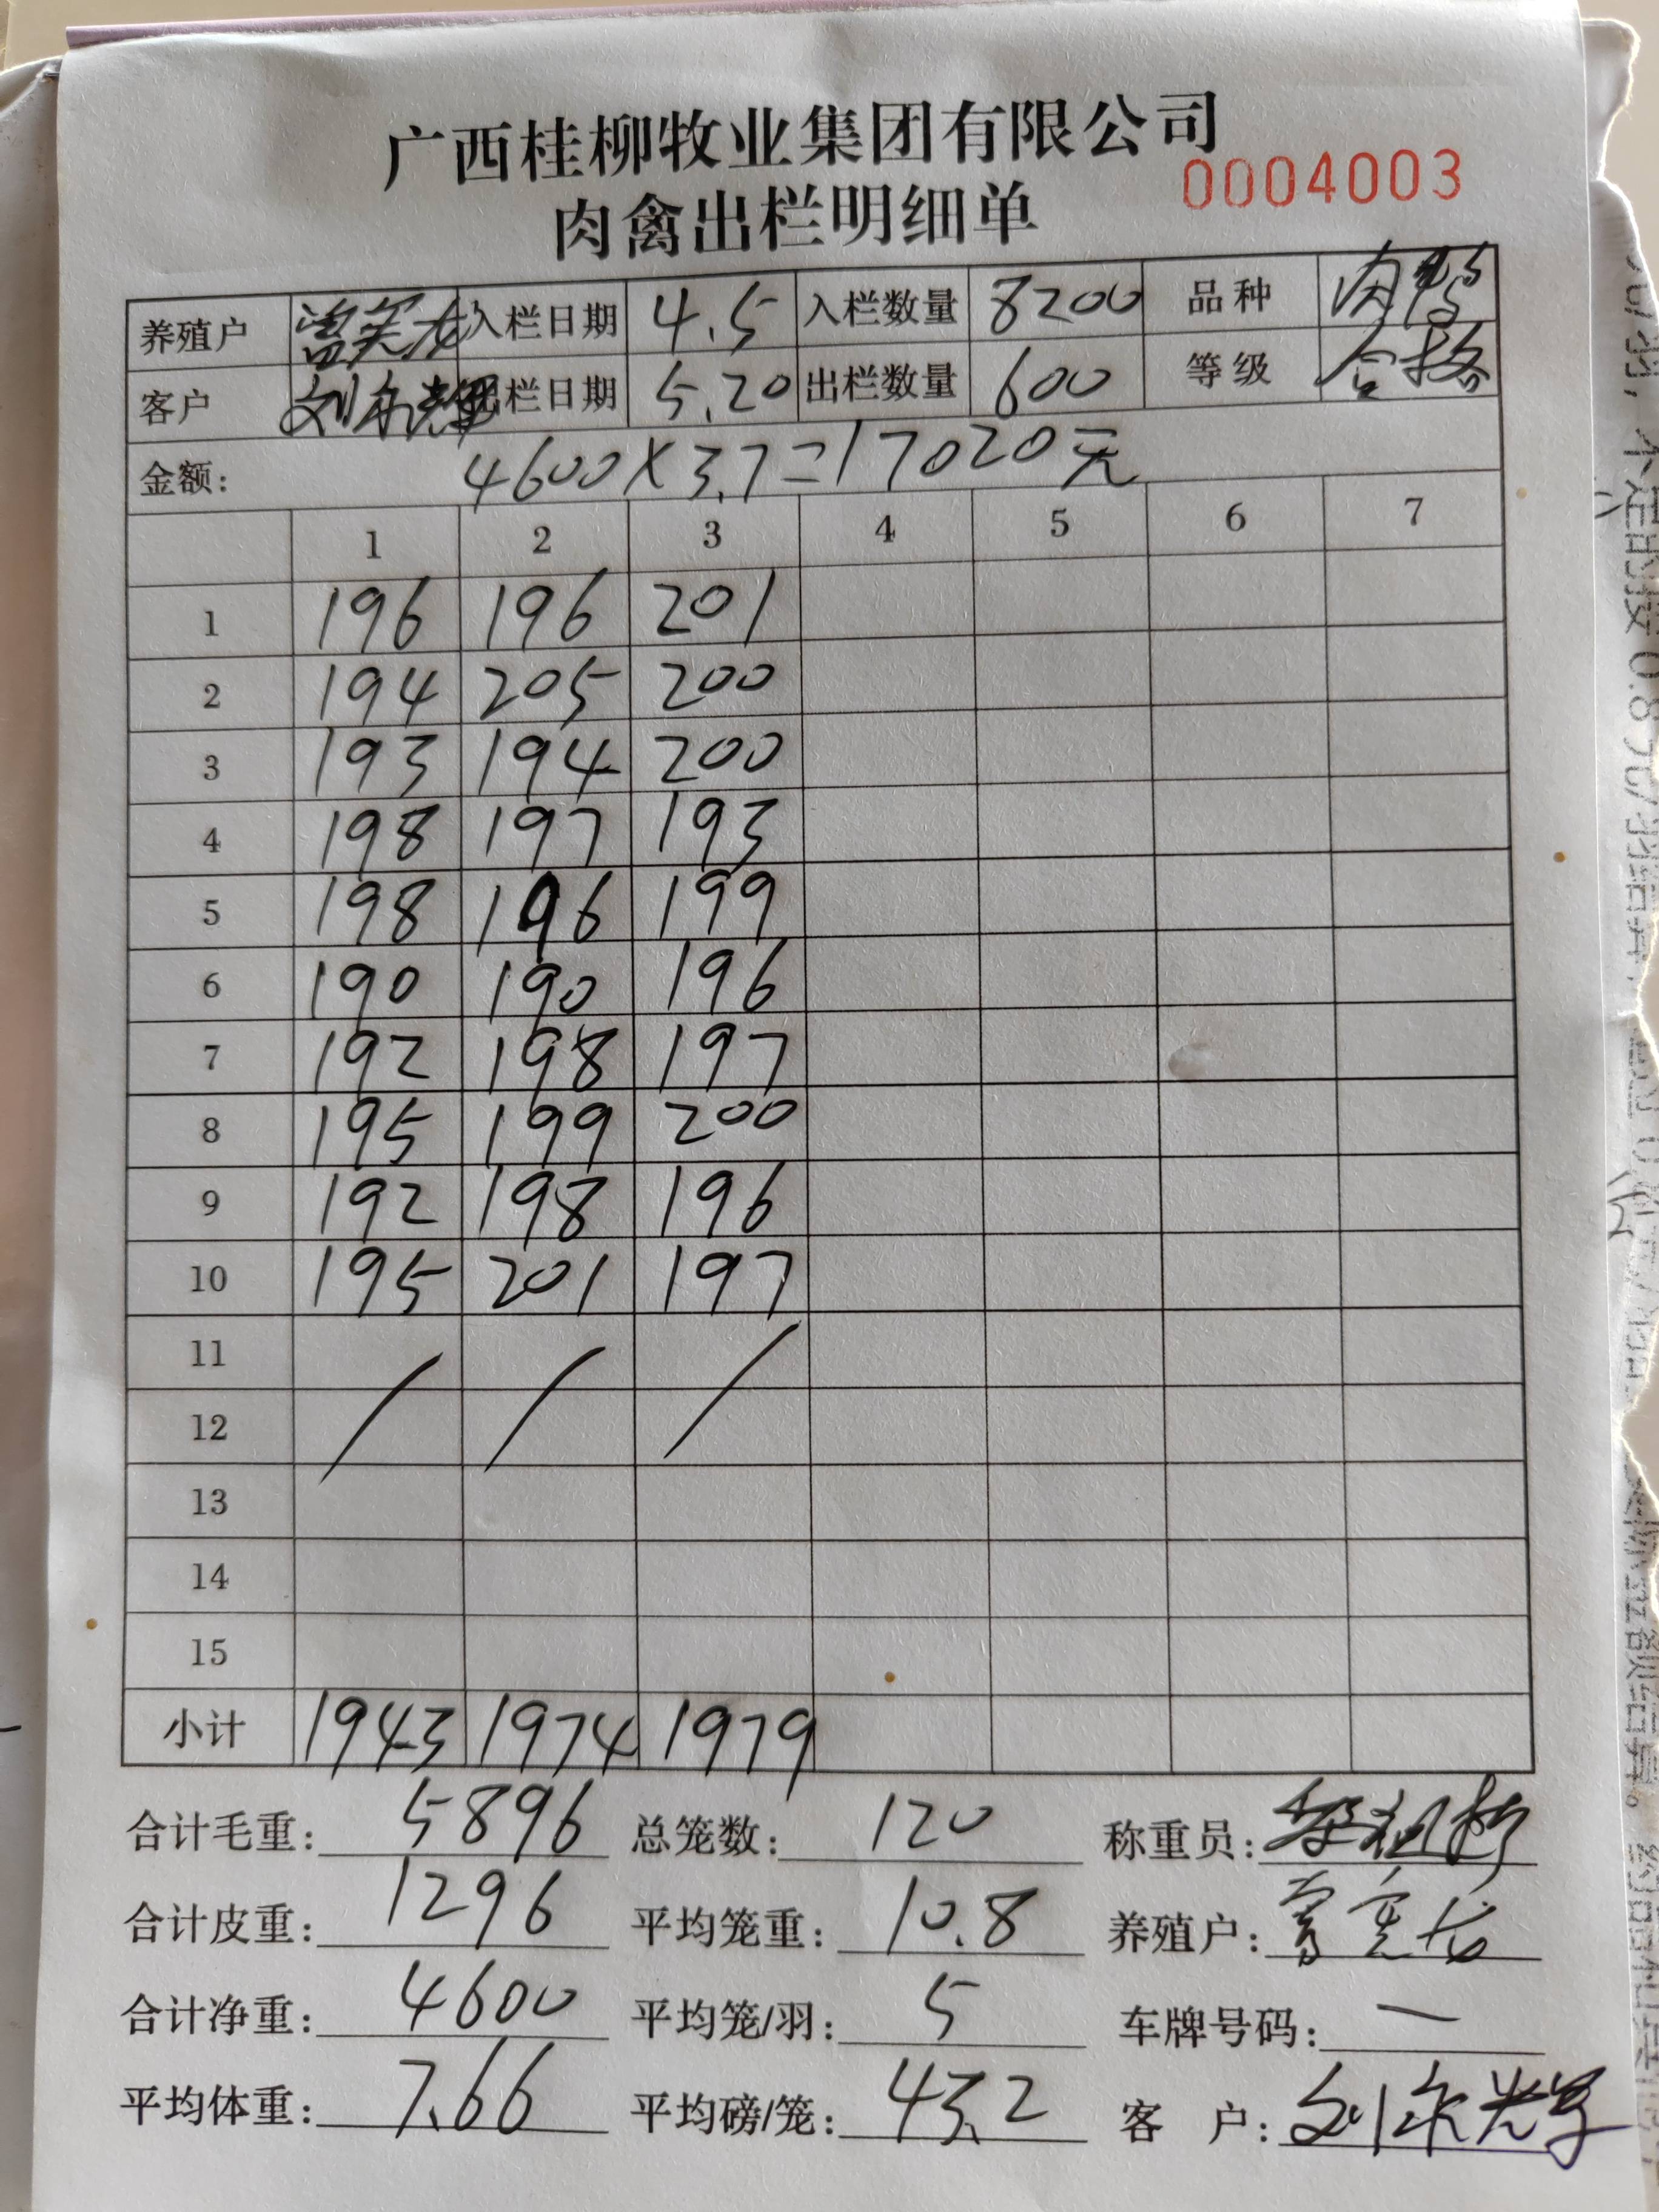 广西桂柳牧业集团有限公司
肉禽出栏明细单 0004003
养殖户 入栏日期 4.5 入栏数量 8200 品种 肉鸭
客户 出栏日期 5.20 出栏数量 600 等级 合格
金额: 4600×3.7=17020元
1 2 3 4 5 6 7
1 196 196 201
2 194 205 200
3 193 194 200
4 198 197 193
5 198 196 199
6 190 190 196
7 192 198 197
8 195 199 200
9 192 198 196
10 195 201 197
11
12
13
14
15
小计 1943 1974 1979
合计毛重: 5896 总笼数: 120 称重员:
合计皮重: 1296 平均笼重: 10.8 养殖户:
合计净重: 4600 平均笼/羽: 5 车牌号码: 一
平均体重: 7.66 平均磅/笼: 43.2 客户: